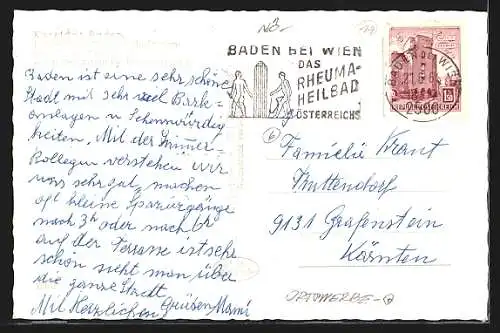 NB-
BADEN BEI WIEN
DAS
RHEUMA-
HEILBAD
ÖSTERREICHS
BADEN BEI WIEN
2500
REPUBLIK ÖSTERREICH
Baden ist eine sehr schöne
Stadt mit sehr viel Park-
anlagen u Sehenswürdig
keiten, Mit der Zimmer-
Kollegin verstehen wir
uns sehr gut, machen
oft kleine Spaziergänge
nach 3h oder nach 6h
auf der Terrasse ist sehr
schön sieht man über
die ganze Stadt.
Mit Herzlichen Grüssen Mami
Familie Kraut
Truttendorf
9131 Grafenstein
Kärnten
ORTSWERBE-